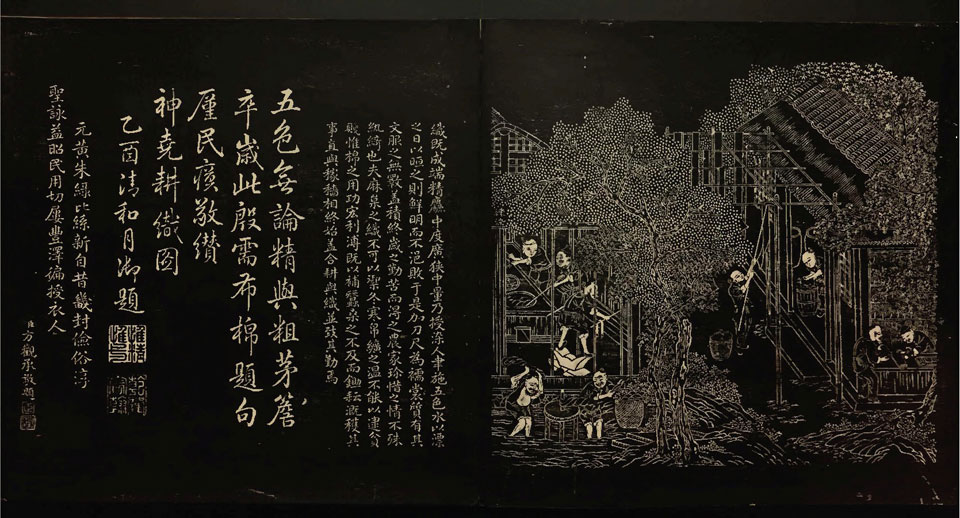 織既成端精麤中度廣狹中量乃授湅人聿施五色水以漂
之日以晅之則鮮明而不浥敗于是加刀尺為襦裳質有其
文服之無斁蓋積終歲之勤苦而得之農家珍惜之情不殊
紈綺也夫麻枲之織不可以禦冬寒帛纊之溫不能以逮貧
賤惟棉之用功宏利溥既以補蠶桑之不及而鋤耘溉穫其
事直與稼穡相終始蓋合耕與織並致其勤焉
五色無論精與粗茅簷
卒歲此殷需布棉題句
廑民瘼敬纘
神堯耕織圖
乙酉清和月御題
惟精惟一
乾隆宸翰
元黃朱綠比絲新自昔畿封儉俗淳
聖詠益昭民用切屢豐澤徧授衣人
臣方觀承敬題